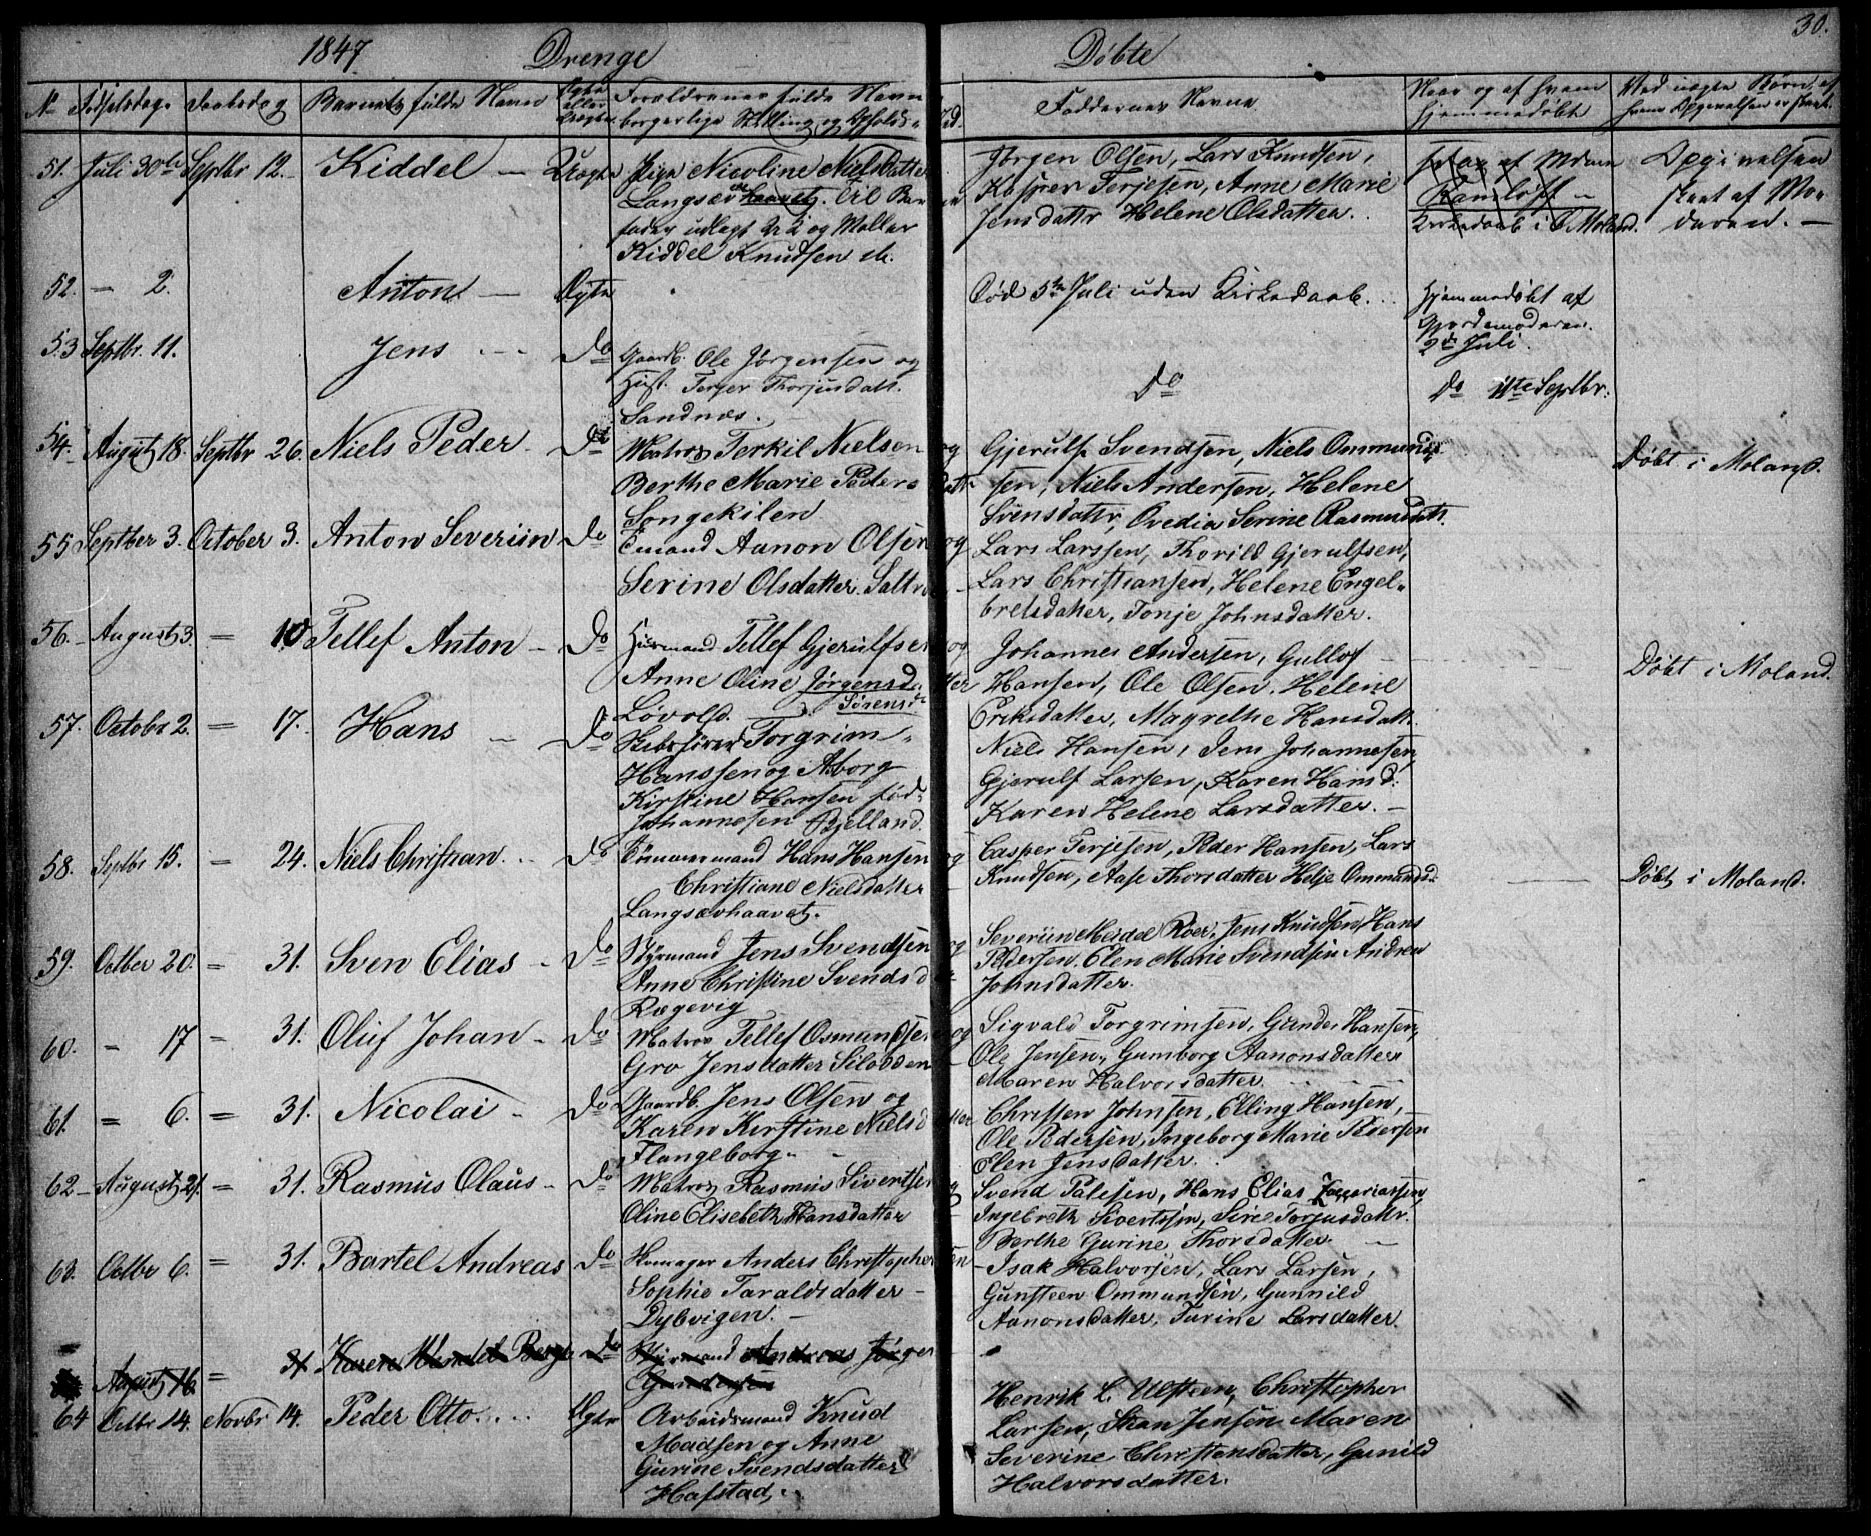 1847 Drenge Døbte 30.
No Fødselsdag Daabsdag Barnets fulde Navn Ægte eller Uægte Forældrenes fulde Navn borgerlige Stilling og Opholds- sted. Faddernes Navne Naar og af hvem hjemmedøbt Ved uægte Børn, af hvem Opgivelsen er skeet
51. Juli 30te Septbr 12. Kiddel — Uægte Pige Nicoline Nielsdatter Jørgen Olsen, Lars Knudsen, Opgivelsen
Langsævhaavet. til Barne- Kasper Terjesen, Anne Marie skeet af Mo-
fader udlagt og Møller Jensdattr Helene Olsdatter. Kirkedaab i Ø. Moland. deren. —
Kiddel Knudsen
52. — 2. Anton — Ægte Død 5te Juli uden Kirkedaab. Hjemmedøbt af
Gjordemoderen.
2den Juli.
53 Septbr. 11. Jens — Do Gaardb. Ole Jørgensen og
Hust. Terjer Thorjusdatt. Do Do 11te Septbr.
Sandnæs.
54. August 18. Septbr 26. Niels Peder — Do Matros Terkil Nielsen og Gjerulf Svendsen, Niels Ommund- Døbt i Moland.
Berthe Marie Pedersdattr sen, Niels Andersen, Helene
Songekilen Svensdattr, Ovedia Serine Rasmusdtt.
55 Septber 3. October 3. Anton Severiin Do Aanon Olsen og Lars Larssen, Thorild Gjerulfsen,
Serine Olsdatter. Lars Christiansen, Helene Engel-
bretsdatter, Tonje Johnsdatter.
56. August 3. = 10 Tellef Anton — Do Huusmand Tellef Gjerulfsen og Johannes Andersen, Gullof Døbt i Moland.
Anne Oline Jørgensdatter Hansen, Ole Olsen. Helene
Løvold. Sørensd. Eriksdatter, Magrethe Hansdatt.
57. Octobr 2. = 17. Hans — Do Skibsfører Torgrim Niels Hansen, Jens Johannesen,
Hanssen og Aborg Gjerulf Larsen, Karen Hansd.
Kirstine Hansen fød- Karen Helene Larsdatter. —
Johannesen Bjelland.
58. Septbr 15. — 24. Niels Christian. Do Tømmermand Hans Hansen og Casper Terjesen, Peder Hansen, Lars
Christiane Nielsdatter Knudsen, Aase Thorsdatter Helje Ommundsd. Døbt i Moland.
Langsævhaavet.
59. Octber 20. = 31. Sven Elias — Do Styrmand Jens Svendsen og Severiin Meidel Roer, Jens Knudsen, Hans
Anne Christine Svendsd Pedersen. Elen Marie Svendsen Andrea
Rægevig Johnsdatter.
60. — 17 — 31. Oluf Johan — Do Matros Tellef Osmundsen og Sigvald Torgrimsen, Gunder Hansen,
Gro Jensdatter Silodden Ole Jensen, Gumborg Aanonsdatter
Maren Halvorsdatter.
61. = 6. = 31. Nicolai — Do Gaardb. Jens Olsen og Christen Johnsen, Elling Hansen,
Karen Kirstine Nielsdatter Ole Pedersen, Ingeborg Marie Pedersen
Flangeborg. Elen Jensdatter.
62 — August 21. = 31. Rasmus Olaus — Do Matros Rasmus Sivertsen og Svend Palesen, Hans Elias Zacariassen,
Oline Elisebeth Hansdatter Ingebreth Sivertsen, Siril Torjusdattr.
Berthe Gurine Thorsdatter. —
63. Octbr 6. = 31. Bartel Andreas Do Anders Christophersen Isak Halvorsen, Lars Larsen,
Sophie Taraldsdatter — Gunsteen Ommundsen, Gunnild
Dybvigen. — Aanonsdatter, Turine Larsdatter.
August 16. = 31 Karen Do Styrmand Andreas Jørgen
Gundersen
64 Octbr 14. Novbr 14. Peder Otto Ægte Arbeidsmand Knud Henrik L. Ulsteen, Christopher
Madsen og Anne Larsen, Jensen Maren
Gurine Svendsdatter Severine Christensdatter, Gunild
Hafstad. Halvorsdatter.